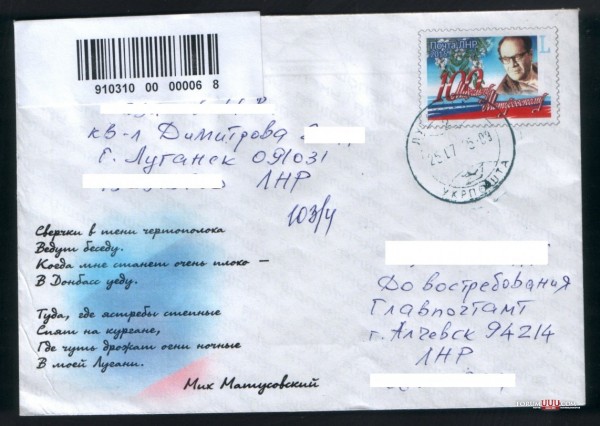 910310 00 00006 8
Почта ЛНР
100
L
кв-л Димитрова
г. Луганск 091031
ЛНР
103/4
УКРПОШТА
Сверчки в тени чертополоха
Ведут беседу.
Когда мне станет очень плохо –
В Донбасс уеду.
Туда, где ястребы степные
Спят на кургане,
Где чуть дрожат огни ночные
В моей Лугани.
Мих Матусовский
До востребования
Главпочтамт
г. Алчевск 94214
ЛНР